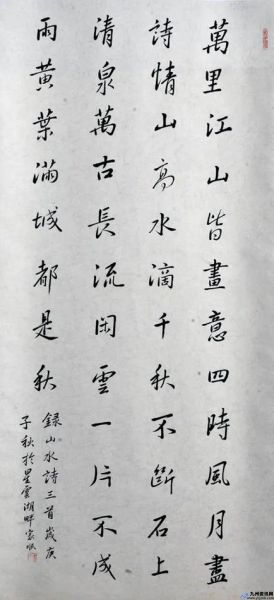 萬里江山皆畫意四時風月盡
詩情山高水滴千秋不斷石上
清泉萬古長流閑雲一片不成
雨黃葉滿城都是秋
錄山水詩三首歲庚
子秋於星雲湖畔